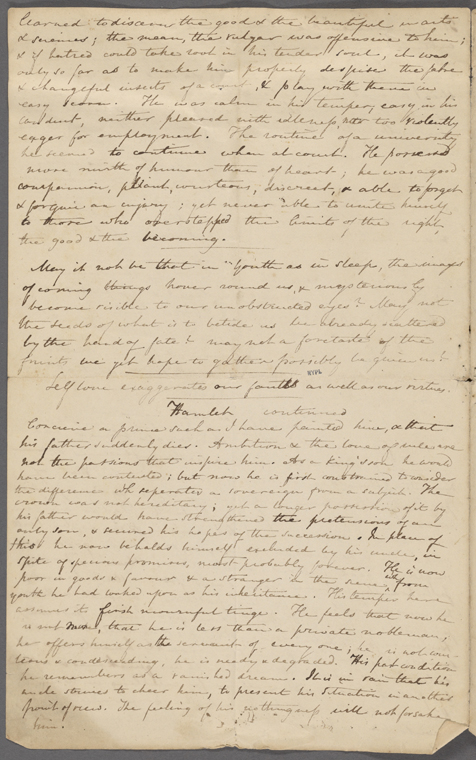 learned to discern the good & the beautiful in arts
& sciences; the mean, the vulgar was offensive to him;
& if hatred could take root in his tender soul, it was
only so far as to make him properly despise the false
& changeful insects of a court, & play with them in
easy scorn. He was calm in his temper, easy in his
conduct, neither pleased with idleness, nor too violently
eager for employment. The routine of a university
he seemed to continue when at court. He possessed
more mirth of humour than of heart; he was a good
companion, pliant, courteous, discreet, & able to forget
& forgive an injury; yet never able to unite himself
to those who overstepped the limits of the right,
the good & the becoming.
May it not be that in "Youth as in sleep, the images
of coming things hover round us, & mysteriously
become visible to our unobstructed eyes? May not
the seeds of what is to betide us be already scattered
by the hand of fate? may not a foretaste of the
fruits we yet hope to gather possibly be given us?
NYPL
Self love exaggerates our faults as well as our virtues.
Hamlet continued
Conceive a prince such as I have painted him, & that
his father suddenly dies. Ambition & the love of rule are
not the passions that inspire him. As a king's son he would
have been contented; but now he is first constrained to consider
the difference which separates a sovereign from a subject. The
crown was not hereditary; yet a longer possession of it by
his father would have strengthened the pretensions of an
only son, & secured his hopes of the succession. In place of
this he now beholds himself excluded by his uncle, in
spite of specious promises, most probably forever. He is now
poor in goods & favour & a stranger in the scene which from
youth he had looked upon as his inheritance. His temper here
assumes its first mournful tinge. He feels that now he
is not more, that he is less than a private nobleman,
he offers himself as the servant of every one; he is not cour-
teous & condescending, he is needy & degraded. His past condition
he remembers as a vanished dream. It is in vain that his
uncle strives to cheer him, to present his situation in another
point of view. The feeling of his nothingness will not forsake
him.